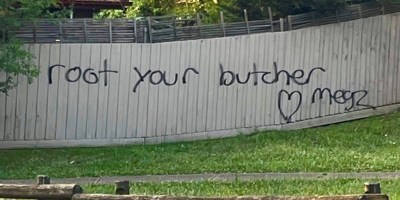 root your butcher
♡ megz